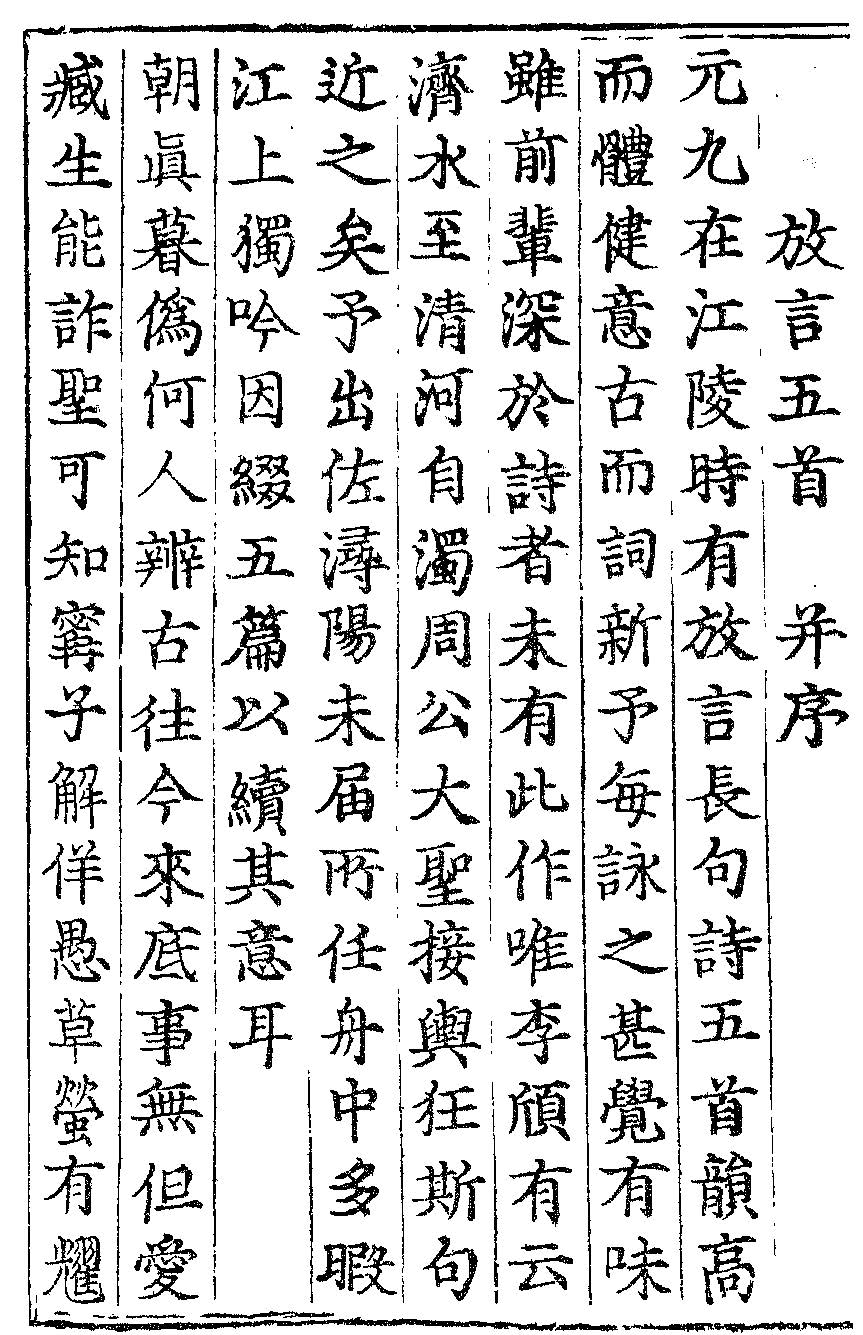 放言五首 并序
元九在江陵時有放言長句詩五首韻高
而體健意古而詞新予每詠之甚覺有味
雖前輩深於詩者未有此作唯李頎有云
濟水至清河自濁周公大聖接輿狂斯句
近之矣予出佐潯陽未届所任舟中多暇
江上獨吟因綴五篇以續其意耳
朝真暮僞何人辨古往今來底事無但愛
臧生能詐聖可知寗子解佯愚草螢有耀